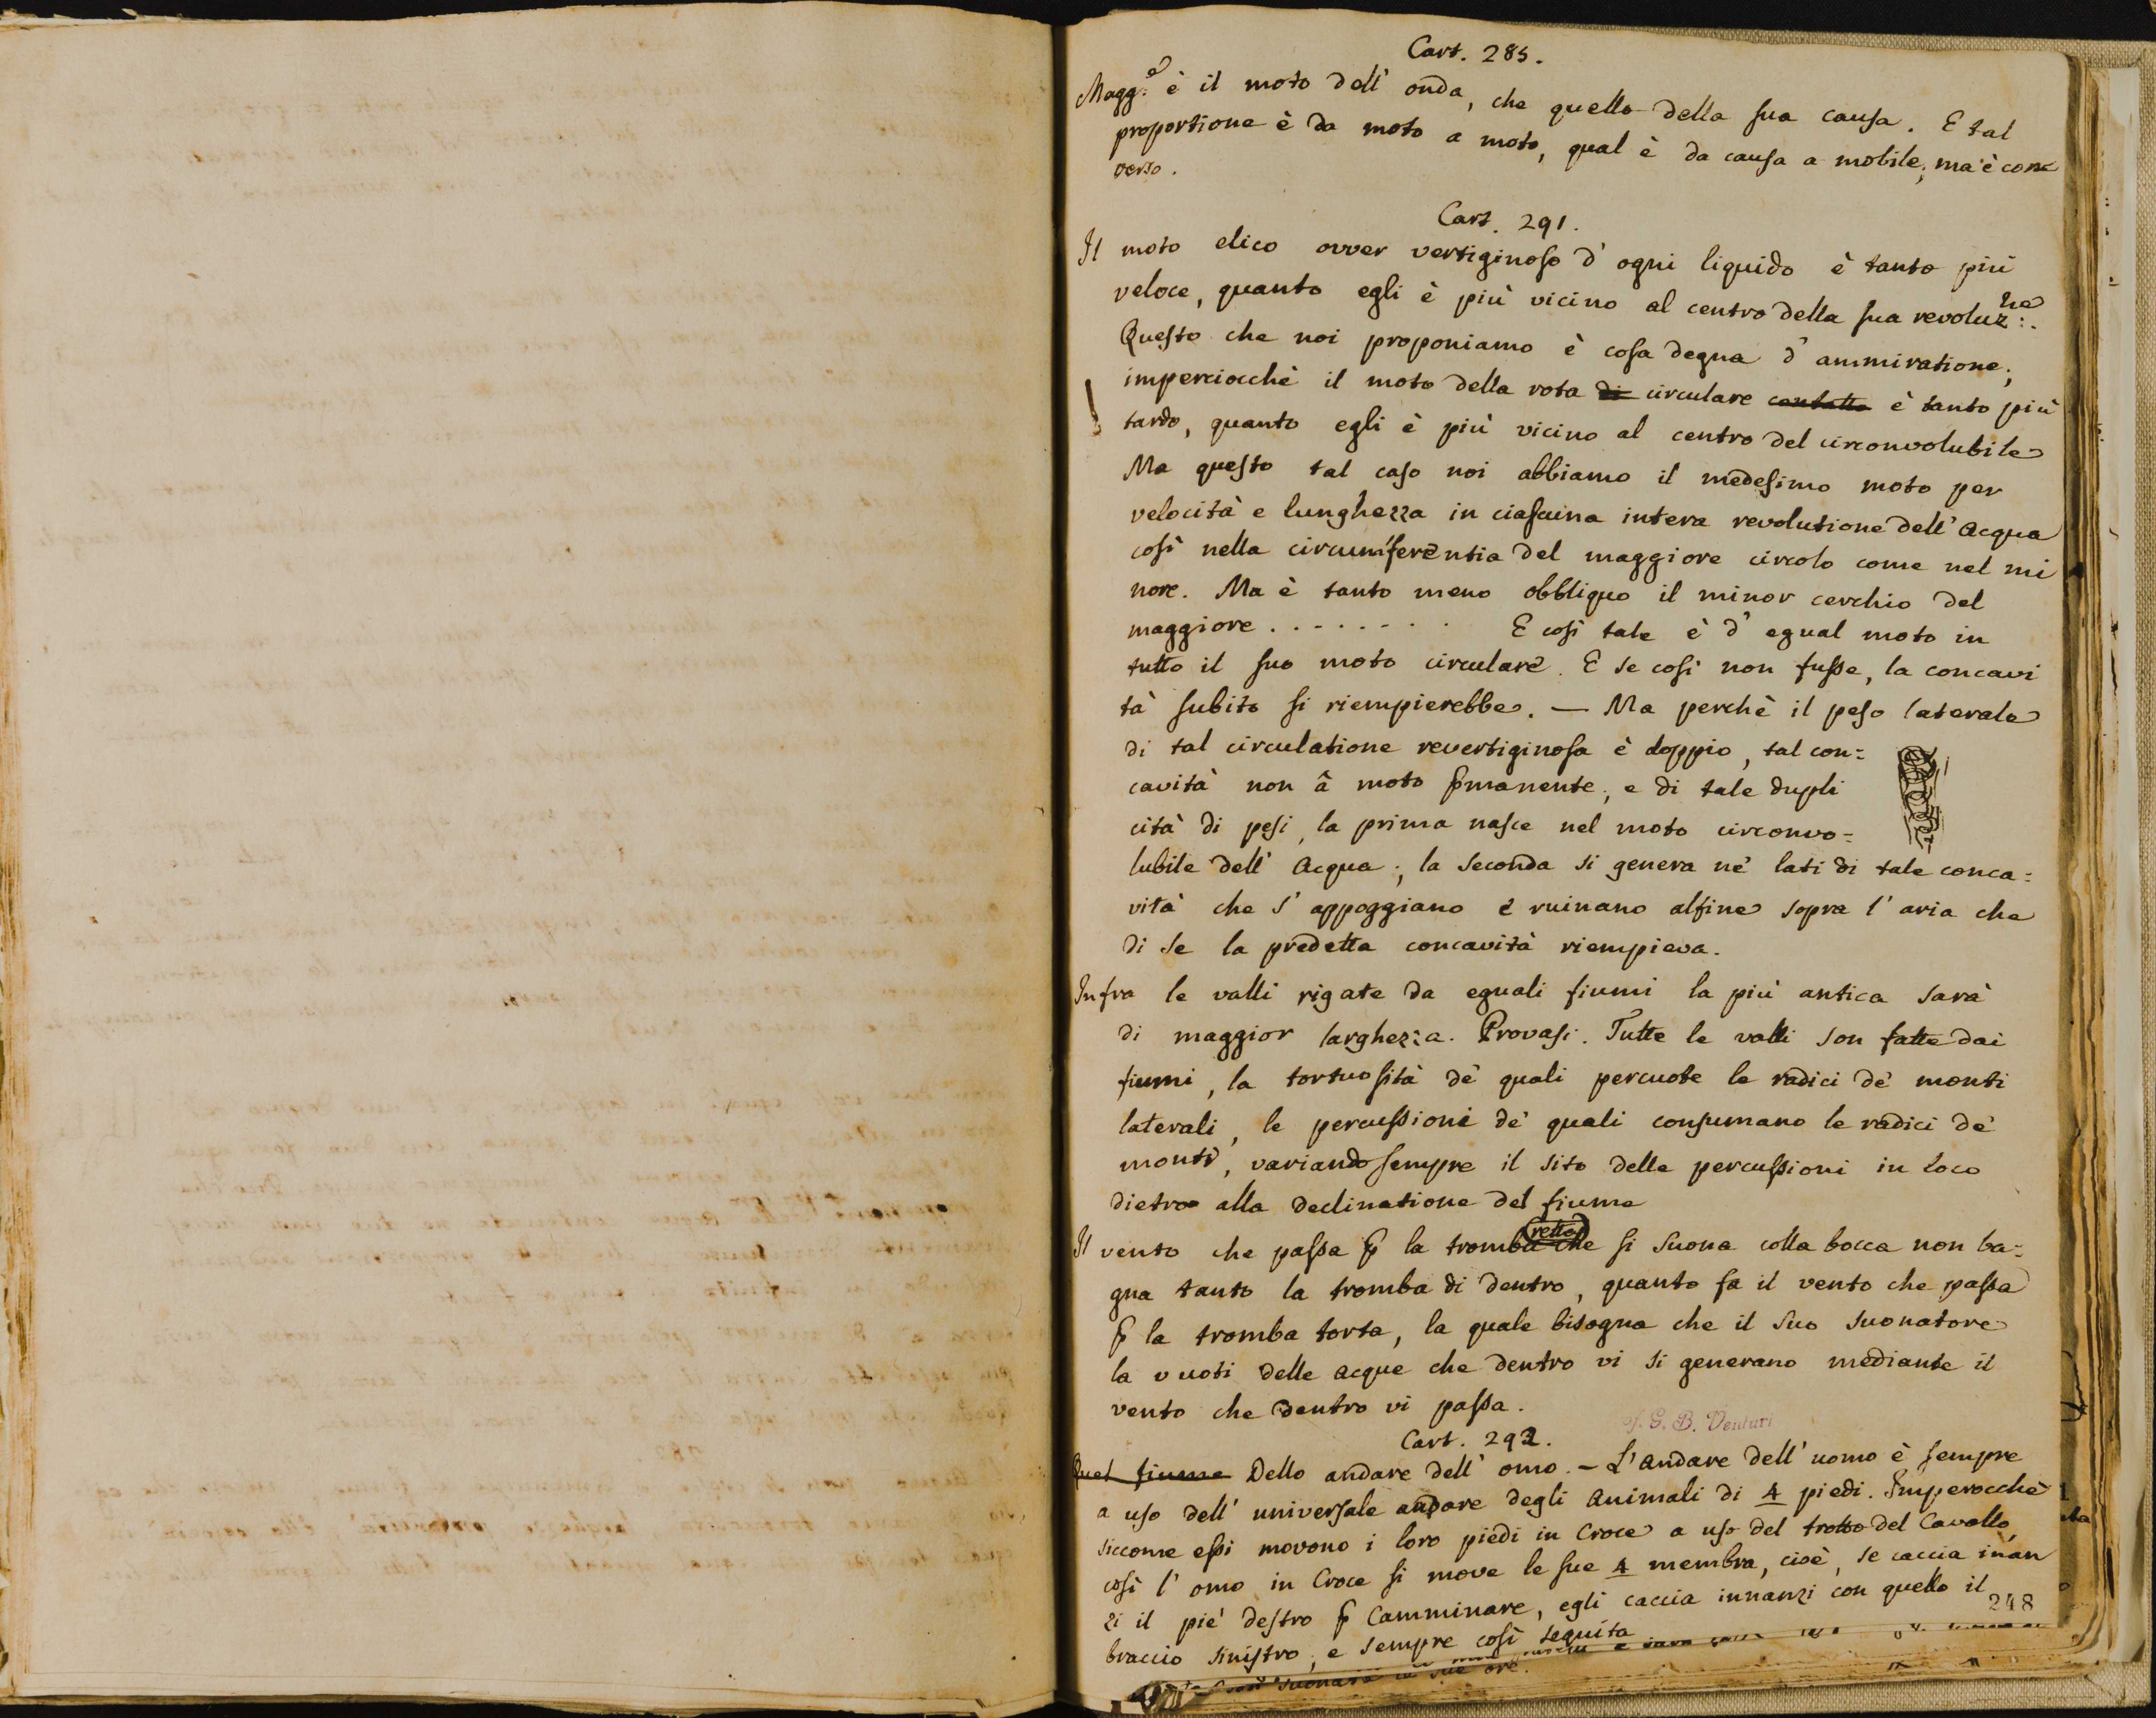 Cart. 285.
Magg.e è il moto dell' onda, che quello della sua causa. E tal
proportione è da moto a moto, qual è da causa a mobile; ma è con
verso.
Cart. 291.
Il moto elico ovver vertiginoso d' ogni liquido è tanto più
veloce, quanto egli è più vicino al centro della sua revoluz:ne.
Questo che noi proponiamo è cosa degna d' ammiratione;
imperciocchè il moto della rota di circulare contatto è tanto più
tardo, quanto egli è più vicino al centro del circonvolubile
Ma questo tal caso noi abbiamo il medesimo moto per
velocità e lunghezza in ciascuna intera revolutione dell' Acqua
così nella circumferentia del maggiore circolo come nel mi
nore. Ma è tanto meno obbliquo il minor cerchio del
maggiore . . . . . . . . E così tale è d' egual moto in
tutto il suo moto circulare. E se così non fusse, la concavi
tà subito si riempierebbe. — Ma perchè il peso laterale
di tal circulatione revertiginosa è doppio, tal con=
cavità non â moto ꝑmanente; e di tale dupli
cità di pesi, la prima nasce nel moto circonvo=
lubile dell' Acqua; la seconda si genera ne' lati di tale conca=
vità che s' appoggiano e ruinano alfine sopra l' aria che
di se la predetta concavità riempieva.
Infra le valli rigate da eguali fiumi la più antica sarà
di maggior larghezza. Provasi. Tutte le valli son fatte dai
fiumi, la tortuosità de' quali percuote le radici de' monti
laterali, le percussioni de' quali consumano le radici de'
monti, variando sempre il sito delle percussioni in loco
dietro alla declinatione del fiume
Il vento che passa ꝑ la tromba retta che si suona colla bocca non ba=
gna tanto la tromba di dentro, quanto fa il vento che passa
ꝑ la tromba torta, la quale bisogna che il suo suonatore
la vuoti delle acque che dentro vi si generano mediante il
vento che dentro vi passa.
G. B. Venturi
Cart. 292.
Quel fiume Dello andare dell' omo. – L' Andare dell' uomo è sempre
a uso dell' universale andare degli Animali di 4 piedi. Imperocchè
siccome essi movono i loro piedi in Croce a uso del trotto del Cavallo,
così l' omo in Croce si move le sue 4 membra, cioè, se caccia inan
zi il piè destro ꝑ Camminare, egli caccia innanzi con quello il
248
braccio sinistro, e sempre così seguita